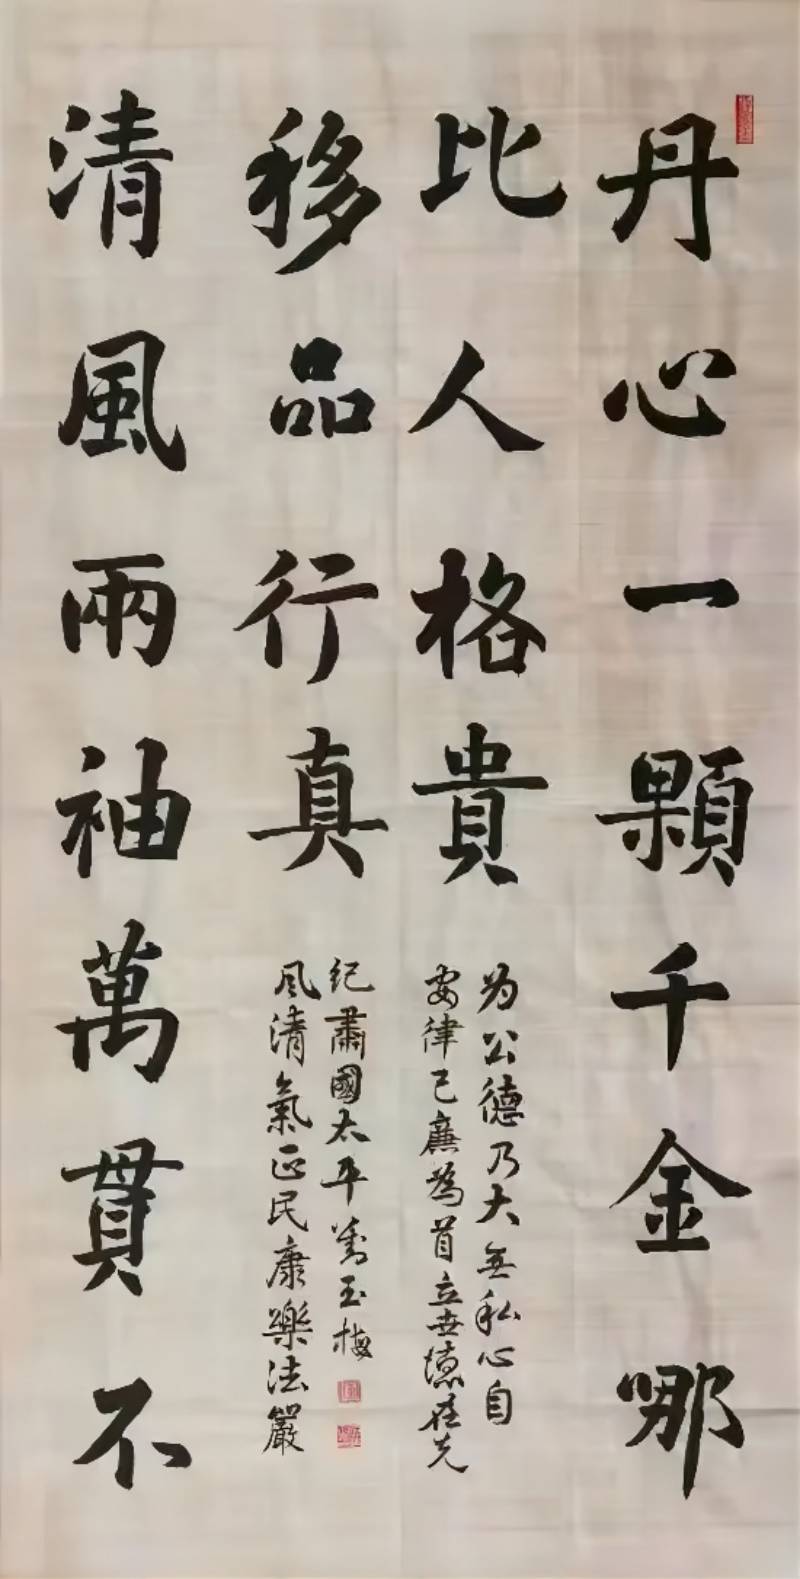 丹心一顆千金哪
比人格貴
为公德乃大無私心自
安律己廉為首立世德在先
清風兩袖萬貫不
移品行真
风清氣正民康樂法嚴
紀肅國太平 玉梅